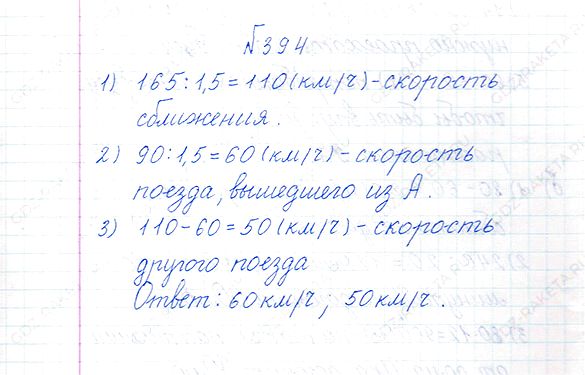 №394
1) 165:1,5=110(км/ч)-скорость
сближения.
2) 90:1,5=60(км/ч)-скорость
поезда, вышедшего из А.
3) 110-60=50(км/ч)-скорость
другого поезда
Ответ: 60км/ч; 50км/ч.